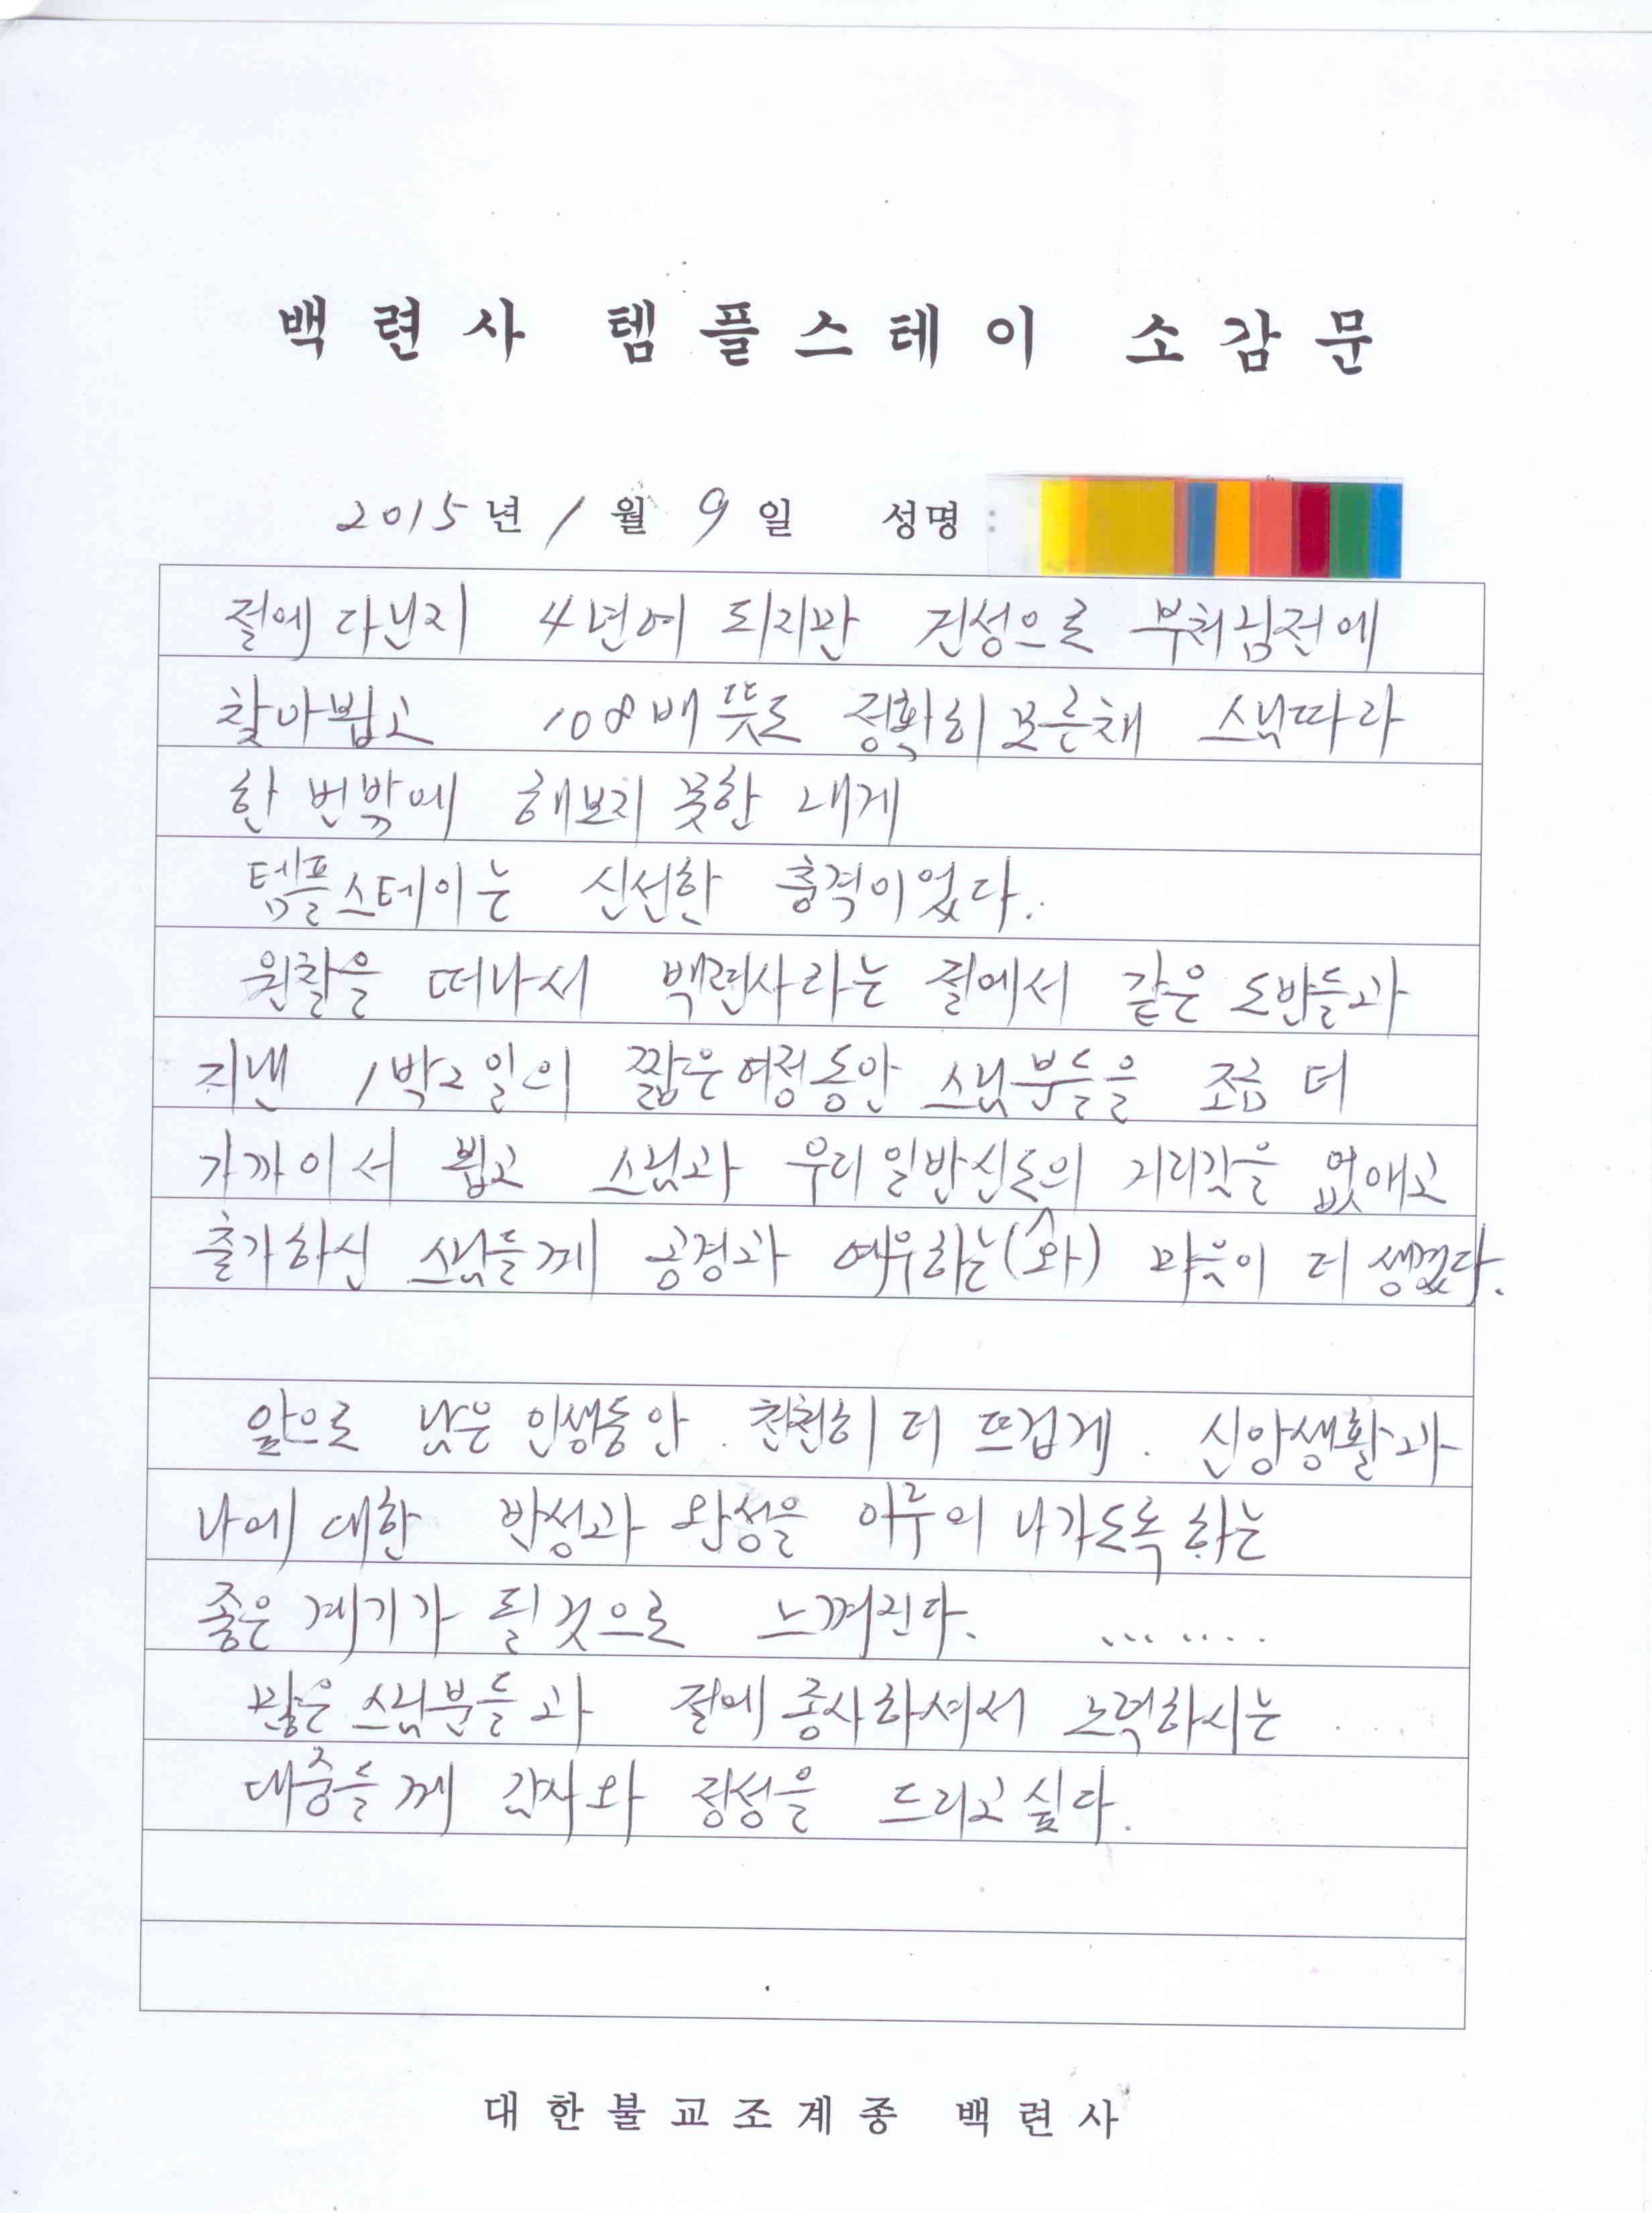 백련사 템플스테이 소감문
2015년 1월 9일 성명 :
절에 다닌지 4년여 되지만 진성으로 부처님전에
찾아뵙고 108배 뜻도 정확히 모른채 스님따라
한 번밖에 해보지 못한 내게
템플스테이는 신선한 충격이었다.
원찰을 떠나서 백련사라는 절에서 같은 도반들과
지낸 1박2일의 짧은여정동안 스님분들을 조금 더
가까이서 뵙고 스님과 우리일반신도의 거리감을 없애고
출가하신 스님들께 공경과 예우하는(와) 마음이 더 생겼다.
앞으로 남은 인생동안. 천천히 더 뜨겁게. 신앙생활과
나에 대한 반성과 완성을 이루의 나가도록 하는
좋은 계기가 될것으로 느껴진다. .......
많은 스님분들과 절에 종사하셔서 노력하시는
대중들께 감사와 정성을 드리고싶다.
대한불교조계종 백련사